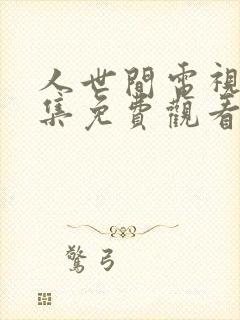 人世間電視
集免費觀看
驚弓